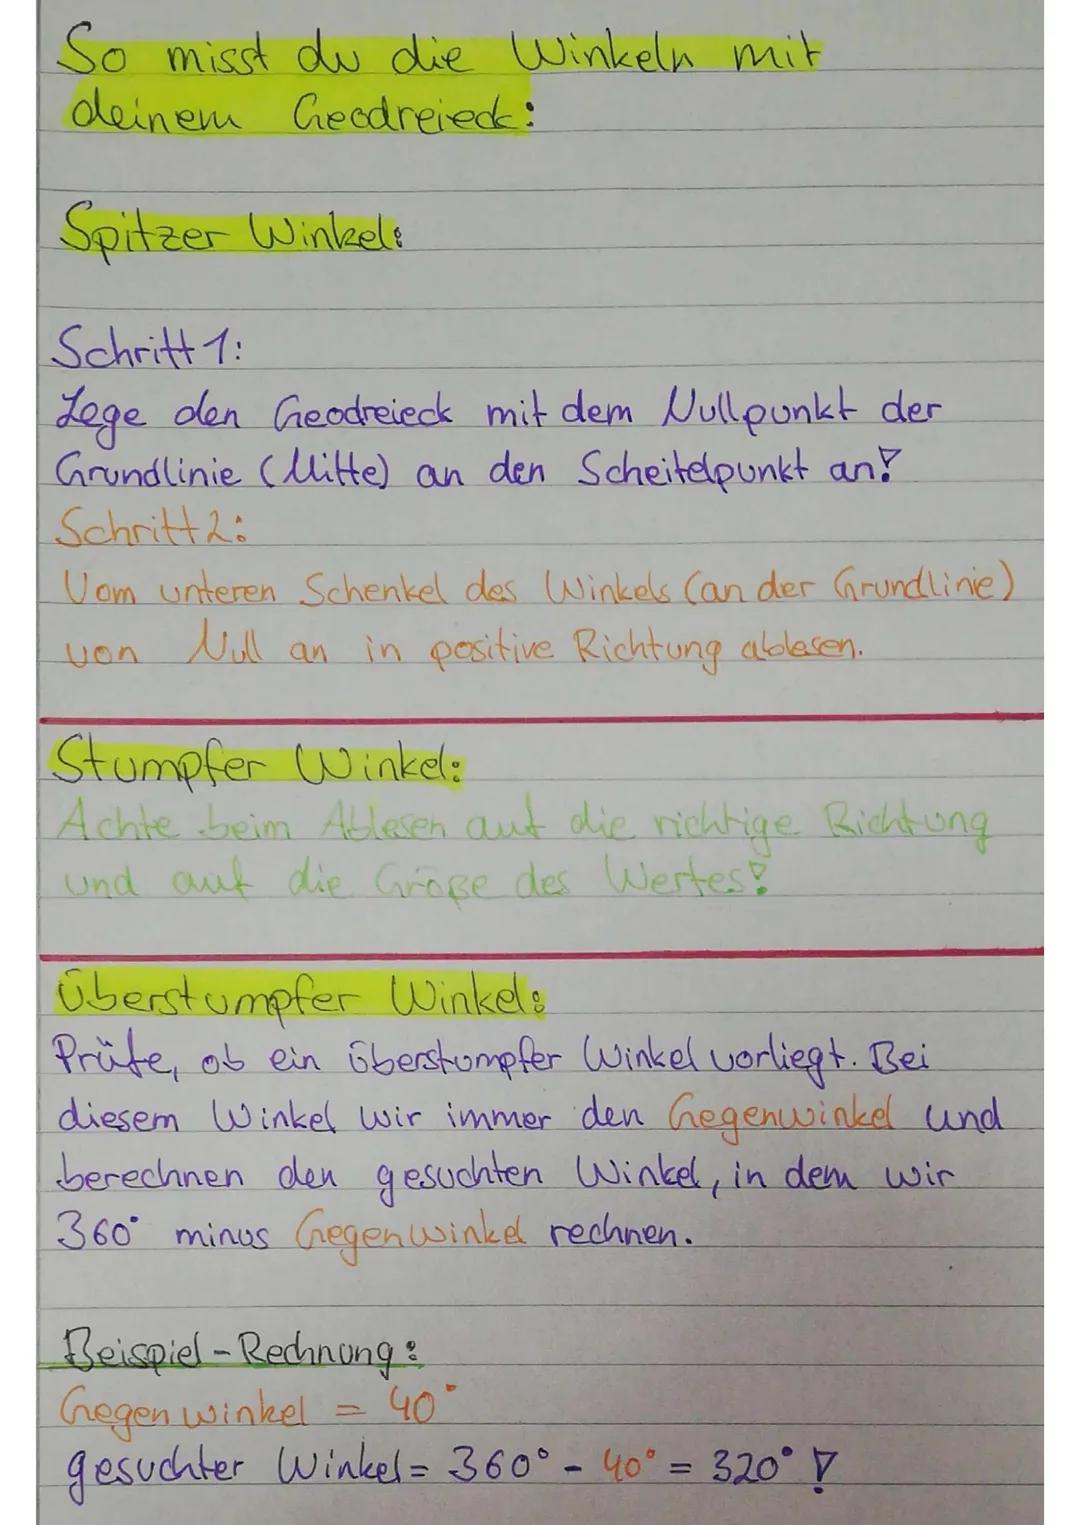 So misst du die Winkeln mit
deinem Geodreieck:
Spitzer Winkel:
Schritt 1:
Lege den Geodreieck mit dem Nullpunkt der
Grundlinie (Mitte) an den Scheitelpunkt an!
Schritt 2:
Vom unteren Schenkel des Winkels (an der Grundlinie)
von Null an in positive Richtung ablesen.
Stumpfer Winkel:
Achte beim Ablesen auf die richtige Richtung
und auf die Größe des Wertes!
Überstumpfer Winkel:
Prüfe, ob ein überstumpfer Winkel vorliegt. Bei
diesem Winkel wir immer den Gegenwinkel und
berechnen den gesuchten Winkel, in dem wir
360° minus Gegenwinkel rechnen.
Beispiel-Rechnung:
Gegenwinkel = 40°
gesuchter Winkel = 360° - 40° = 320°!